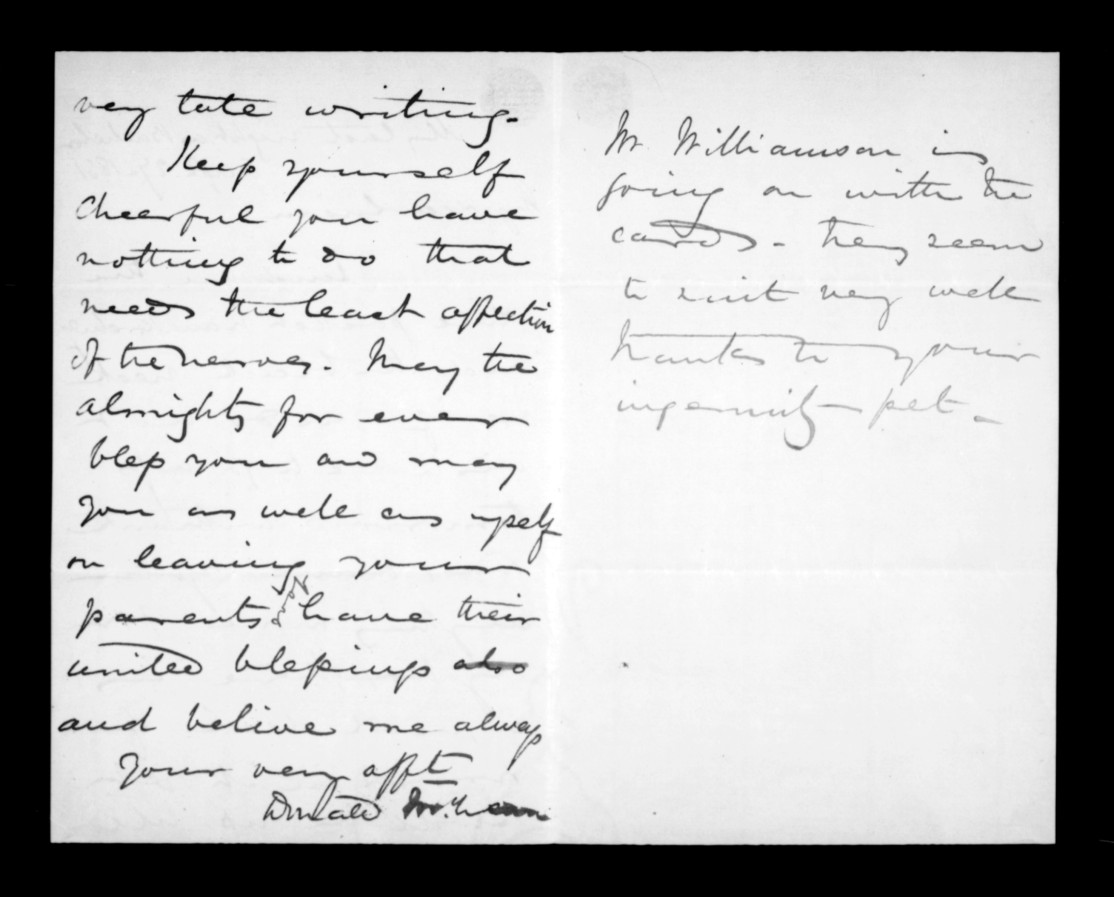 very late writing.
Keep yourself
cheerful you have
nothing to do that
needs the least affection
of the nerves. May the
almighty for ever
bless you and may
you as well as myself
on leaving your
parents & have their
united blessings also
and belive me always
your very afft
Donald McLean
Mr Williamson is
going on with the
cards - they seem
to suit very well
thanks to your
ingenuity pet -